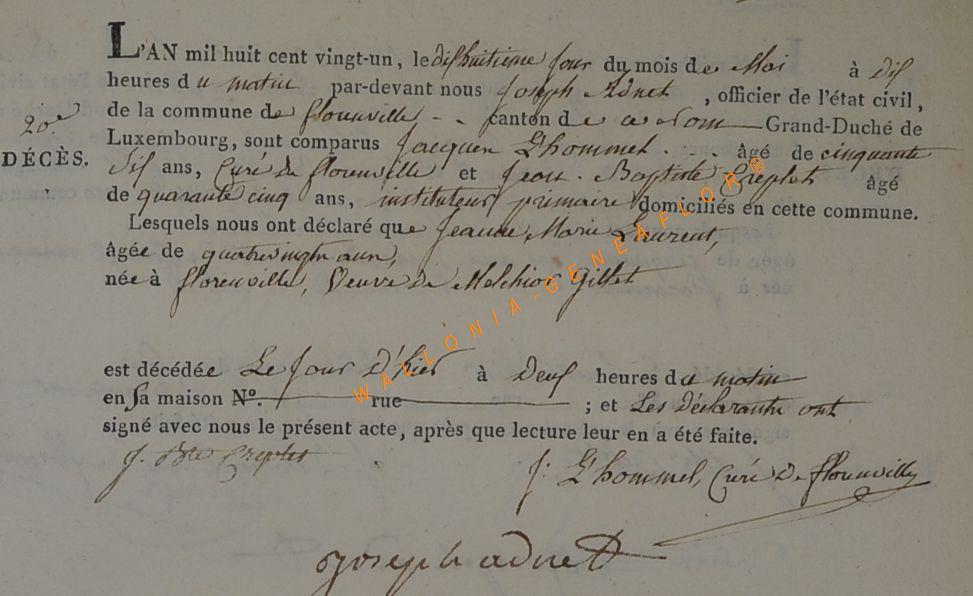 L'AN mil huit cent vingt-un, le dishuitieme jour du mois de Mai à dis
heures du matin par-devant nous Joseph Adnet, officier de l'état civil,
de la commune de florenville - - canton de ce nom Grand-Duché de
20e
DÉCÈS.
Luxembourg, sont comparus Jacques L'hommel . - . âgé de cinquante
Sis ans, Curé de florenville et Jean-Baptiste Creplet âgé
de quarante cinq ans, instituteur primaire domiciliés en cette commune.
Lesquels nous ont déclaré que Jeanne, Marie Laurent,
âgée de quatrevingts ans,
née à florenville, Veuve de Melchior Gillet
est décédée Le Jour D'hier à Deus heures du matin
en Sa maison N°. rue ; et Les Déclarants ont
signé avec nous le présent acte, après que lecture leur en a été faite.
J. Bte Creplet
J: L'hommel, Curé De florenville
Joseph adnet
WALLONIA-GENEAFLOR®